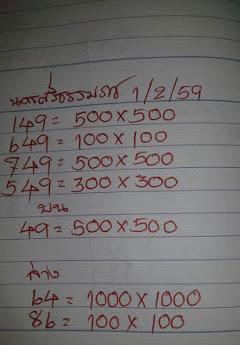 นครศรีธรรมราช 1/2/59
149 = 500 x 500
649 = 100 x 100
749 = 500 x 500
549 = 300 x 300
บน
49 = 500 x 500
ล่าง
64 = 1000 x 1000
86 = 100 x 100